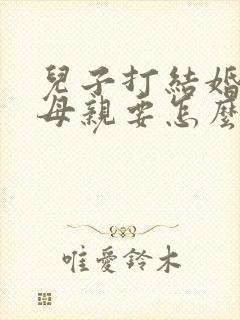 兒子打結婚
母親要怎麼
唯愛鈴木